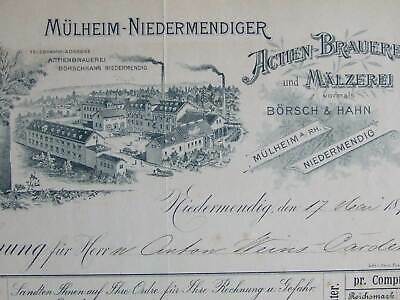 MÜLHEIM-NIEDERMENDIGER
TELEGRAMM-ADRESSE
ACTIENBRAUEREI
BÖRSCHHAHN NIEDERMENDIG.
ACTIEN-BRAUERE
und MÄLZEREI
vormals
BÖRSCH & HAHN
MÜLHEIM A. RH.
NIEDERMENDIG
Niedermendig, den 17 Mai 18
nung für Herrn Anton
Sandten Ihnen auf Ihre Ordre für Ihre Rechnung u. Gefahr
pr. Compt
Reichsmark